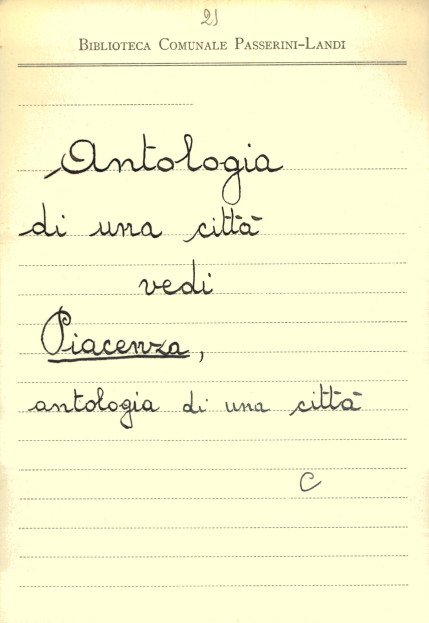 21
BIBLIOTECA COMUNALE PASSERINI-LANDI
Antologia
di una città
vedi
Piacenza,
antologia di una città
C